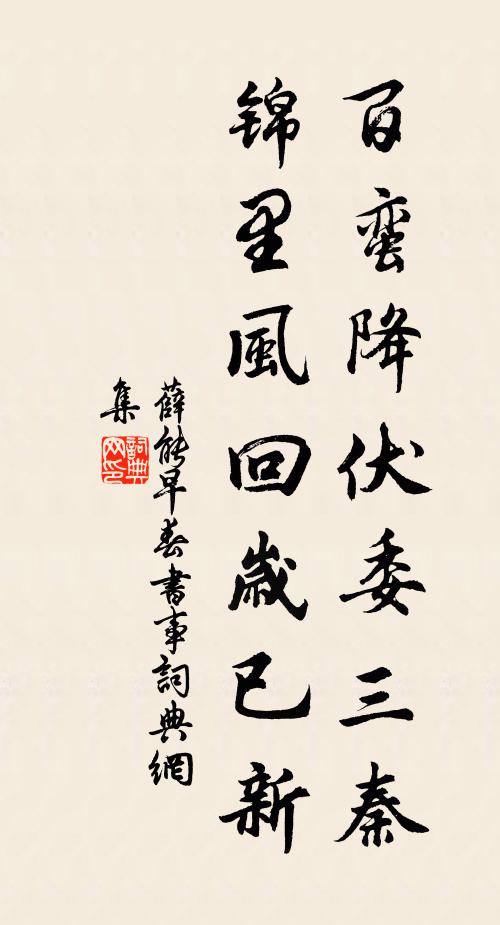 百蛮降伏委三秦
锦里風回歲已新
薛能早春書事詞典網
集
詞典网印